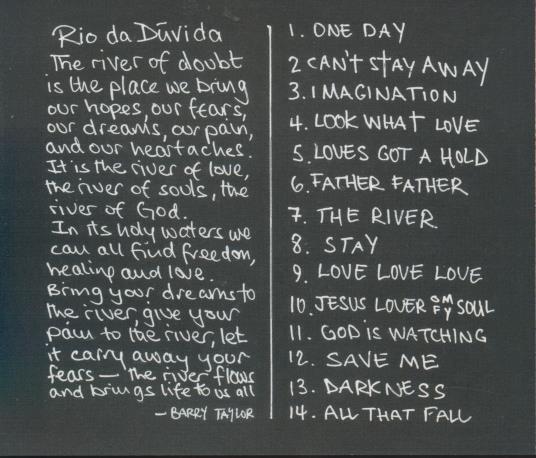 Rio da Dúvida
The river of doubt
is the place we bring
our hopes, our fears,
our dreams, our pain,
and our heartaches.
It is the river of love,
the river of souls, the
river of God.
In its holy waters we
can all find freedom,
healing and love.
Bring your dreams to
the river, give your
pain to the river, let
it carry away your
fears — the river flows
and brings life to us all
— BARRY TAYLOR
1. ONE DAY
2 CAN'T STAY AWAY
3. IMAGINATION
4. LOOK WHAT LOVE
5. LOVES GOT A HOLD
6. FATHER FATHER
7. THE RIVER
8. STAY
9. LOVE LOVE LOVE
10. JESUS LOVER OF MY SOUL
11. GOD IS WATCHING
12. SAVE ME
13. DARKNESS
14. ALL THAT FALL